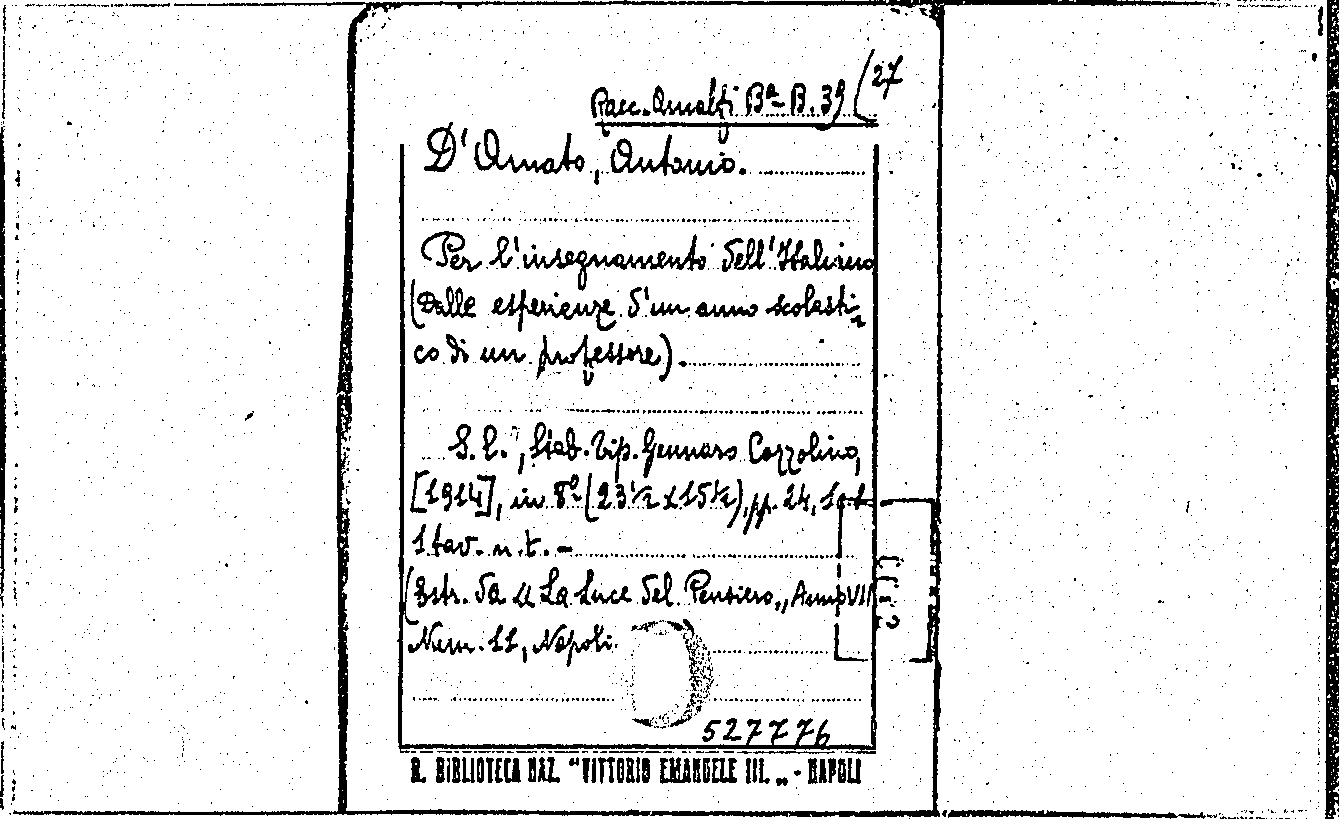 Racc. Amalfi Bª B. 39 (27
D'Amato, Antonio.
Per l'insegnamento dell'Italiano
(Dalle esperienze d'un anno scolasti-
co di un professore).
S. l., Stab. Tip. Gennaro Cozzolino,
[1914], in 8º (23 ½ x 15 ½), pp. 24,
1 tav. n. t. -
(Estr. da "La Luce del Pensiero„, Anno VII
Num. 11, Napoli.
527776
R. BIBLIOTECA NAZ. "VITTORIO EMANUELE III. „ - NAPOLI